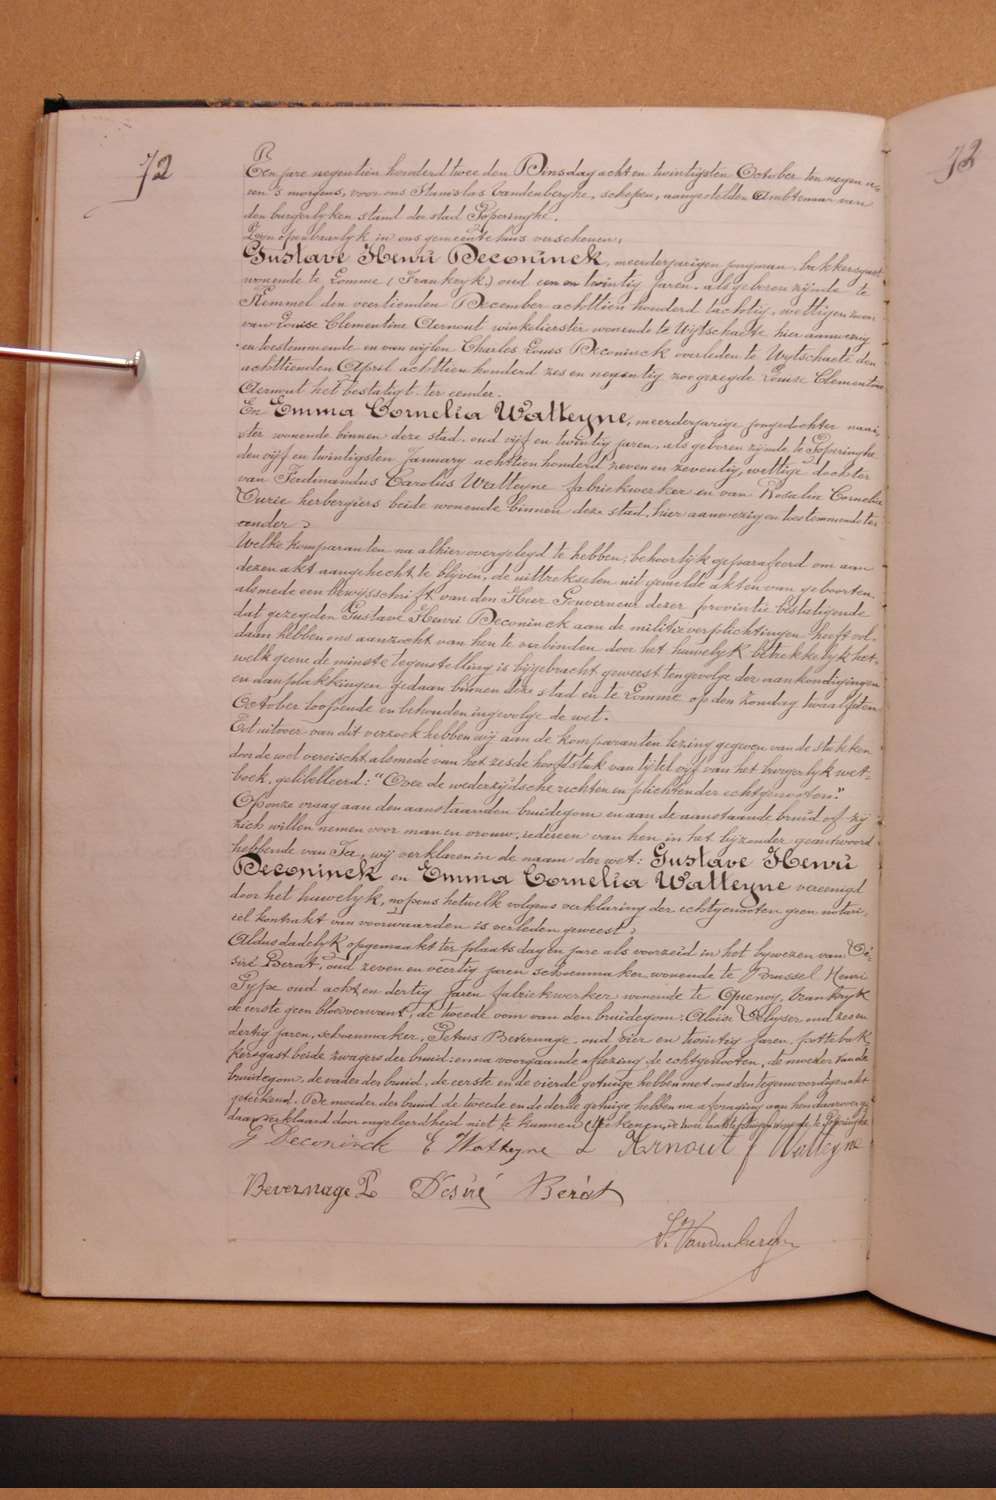 72
73
Een jare negentien honderd twee den Dinsdag acht en twintigsten October ten negen u-
ren 's morgens, voor ons Stanislas Vandenberghe, schepen, aangestelden Ambtenaar van
den burgerlyken stand der stad Poperinghe.
Zyn openbaarlyk in ons gemeentehuis verschenen,
Gustave Henri Deconinck, meerderjarigen jongman, bakkersgast
wonende te Lomme (Frankryk) oud een en twintig jaren, als geboren zynde te
Kemmel den veertienden December achttien honderd tachtig, wettigen zoon
van Louise Clementine Aernout winkelierster wonende te Wytschaete hier aanwezig
en toestemmende en van wylen Charles Louis Deconinck overleden te Wytschaete den
achttienden April achttien honderd zes en negentig zoo gezegde Louise Clementine
Aernout het bestatigt. ter eender.
En Emma Cornelia Watteyne, meerderjarige jongedochter naai-
ster wonende binnen deze stad, oud vyf en twintig jaren, als geboren zynde te Poperinghe
den vyf en twintigsten January achttien honderd zeven en zeventig, wettige dochter
van Ferdinandus Carolus Watteyne fabriekwerker en van Rosalia Cornelia
herbergiers beide wonende binnen deze stad, hier aanwezig en toestemmende ter
eender
Welke komparanten na alhier overgelegd te hebben, behoorlyk geparafeerd om aan
dezen akt aangehecht te blyven, de uittrekselen uit gemelde akten van geboorten,
alsmede een bewysschrift van den Heer Gouverneur dezer provintie bestatigende
dat gezegden Gustave Henri Deconinck aan de militieverplichtingen heeft vol-
daan hebben ons aanzocht van hen te verbinden door het huwelyk betrekkelyk het-
welk geene de minste tegenstelling is bygebracht geweest tengevolge der aankondigingen
en aanplakkingen gedaan binnen deze stad en te Lomme op den Zondag twaalfsten
October loopende en behouden ingevolge de wet.
Tot uitvoer van dit verzoek hebben wy aan de komparanten lezing gegeven van de stukken
door de wet vereischt alsmede van het zesde hoofdstuk van tytel vyf van het burgerlyk wet-
boek, getiteleerd: "Over de wederzydsche rechten en plichten der echtgenooten."
Op onze vraag aan den aanstaanden bruidegom en aan de aanstaande bruid of zy
zich willen nemen voor man en vrouw, iedereen van hen in het byzonder geantwoord
hebbende van Ja, wy verklaren in de naam der wet: Gustave Henri
Deconinck en Emma Cornelia Watteyne vereenigd
door het huwelyk, nopens hetwelk volgens verklaring der echtgenooten geen notari-
eel kontrakt van voorwaarden is verleden geweest,
Aldus dadelyk opgemaakt ter plaats dag en jare als voorzeid in het bywezen van Dé-
siré Berat, oud zeven en veertig jaren schoenmaker wonende te Brussel Henri
Pype oud acht en dertig jaren fabriekwerker wonende te Quesnoy, Frankryk
de eerste geen bloedverwant, de tweede oom van den bruidegom, Aloise oud zes en
dertig jaren, schoenmaker, Petrus Bevernage, oud vier en twintig jaren, pottebak-
kersgast beide zwagers der bruid: en na voorgaande aflezing, de echtgenooten, de moeder van de
bruidegom, de vader der bruid, de eerste en de vierde getuige hebben met ons den tegenwoordigen akt
geteekend. De moeder der bruid de tweede en de derde getuige hebben na afvraging aan hen daarover ge-
daan verklaard door ongeleerdheid niet te kunnen teekenen, de twee laatste getuigen wonende te Poperinghe
G Deconinck E Watteyne L Arnout f Watteyne
Bevernage P Désiré Berat
St. Vandenberghe